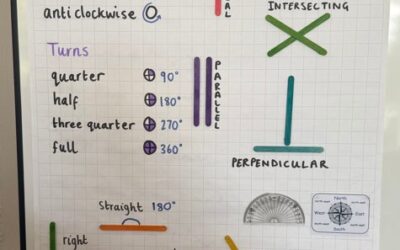 AL
INTERSECTING
anticlockwise
Turns
quarter 90°
half 180°
three quarter 270°
full 360°
PARALLEL
PERPENDICULAR
Straight 180°
North
West East
South
right